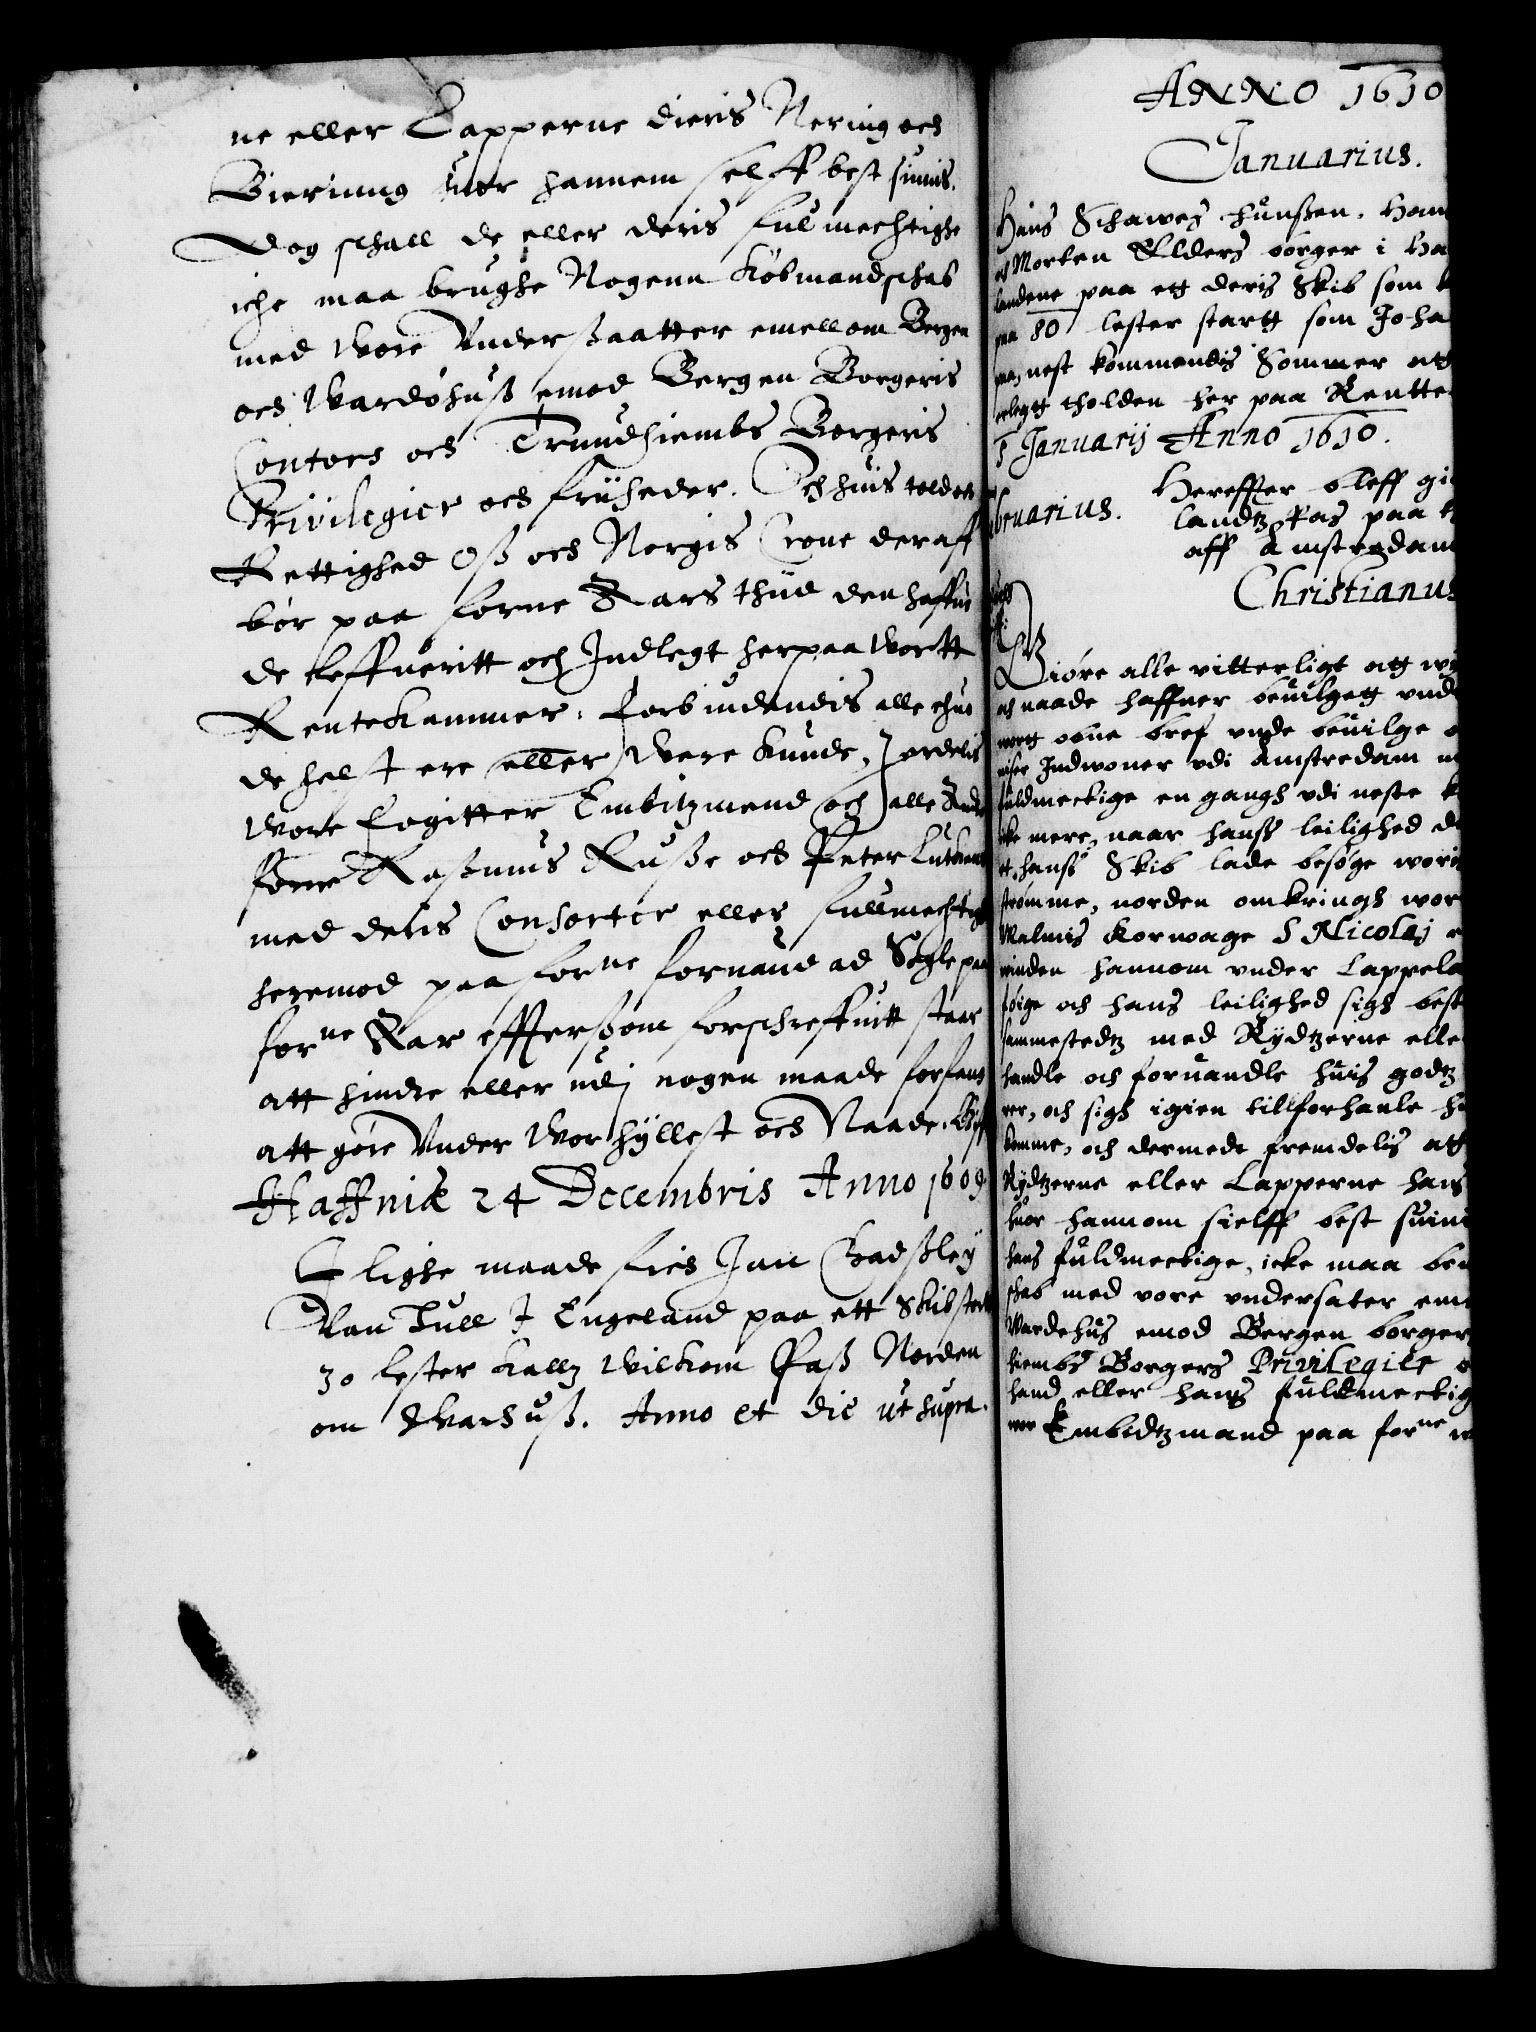 ne eller Lapperne dieris Nering och
Bierinng huor hannem self best siunis.
Dog schall de eller deris fulmechtighe
iche maa brughe Nogenn Købmandschab
med wore Vnderßaatter emellom Bergen
och Wardøhuß emod Bergen Borgeris
Contors och Trundhiembs Borgeris
Privilegier och friiheder. Och huis told och
Rettighed Oß och Norgis Crone deraff
bør paa forne Aars thiid den haffue
de leffueritt och Indlegt herpaa wortt
Rentekammer. Forbiudendis alle ehuo
de helst ere eller were kunde, serdelis
wore Fogitter Embitzmend och alle Andre
forne Raßmus Ruße och Peter
med deris Consorter eller fullmechtige
heremod paa forne fornaud ad Segle paa
forne Aar effterßom forschreffuitt staar
att hindre eller udj nogen maade forfang
att gøre Vnder wor hyllest och Naade.
Haffniæ 24 Decembris Anno 1609.
J lighe maade fich Jan
Van Hull J Engeland paa ett Skib stort
30 lester kallz wilkom Paß Norden
om Warhuß. Anno et die ut supra.
ANNO 1610
Januarius.
Hans
och Morten borger i
landene paa ett deris Skib som
paa 80 lester startt som Joha
nest kommendis Sommer att
erlegtt tholden her paa Rentte
Januarij Anno 1610.
bruarius.
Hereffter bleff
landtz Pas paa
aff Amsterdam
Christianus
Giøre alle vitterligt att wy
och naade haffuer beuilgett vnd
wort obne bref vnde beuilge
Indwoner vdi Amstredam
fuldmectige en gangh vdi neste
icke mere, naar hanß leilighed
hanß Skib lade besøge
strømme, norden omkringh wor
Malmis Korwage S Nicolaj
vinden hannom vnder Lappela
føige och hans leilighed sigh best
sammestedtz med Rydtzerne elle
handle och foruandle huis godtz
rer, och sigh igien tillforhanle
komme, och dermedt fremdelis att
Rydtzerne eller Lapperne hans
huor hannom sielff best siuni
hans fuldmectige, icke maa
schab med vore vndersater em
Wardehus emod Bergen borger
hiembs Borgers Privilegier
hand eller hans fuldmectig
wor Embedtzmand paa forne